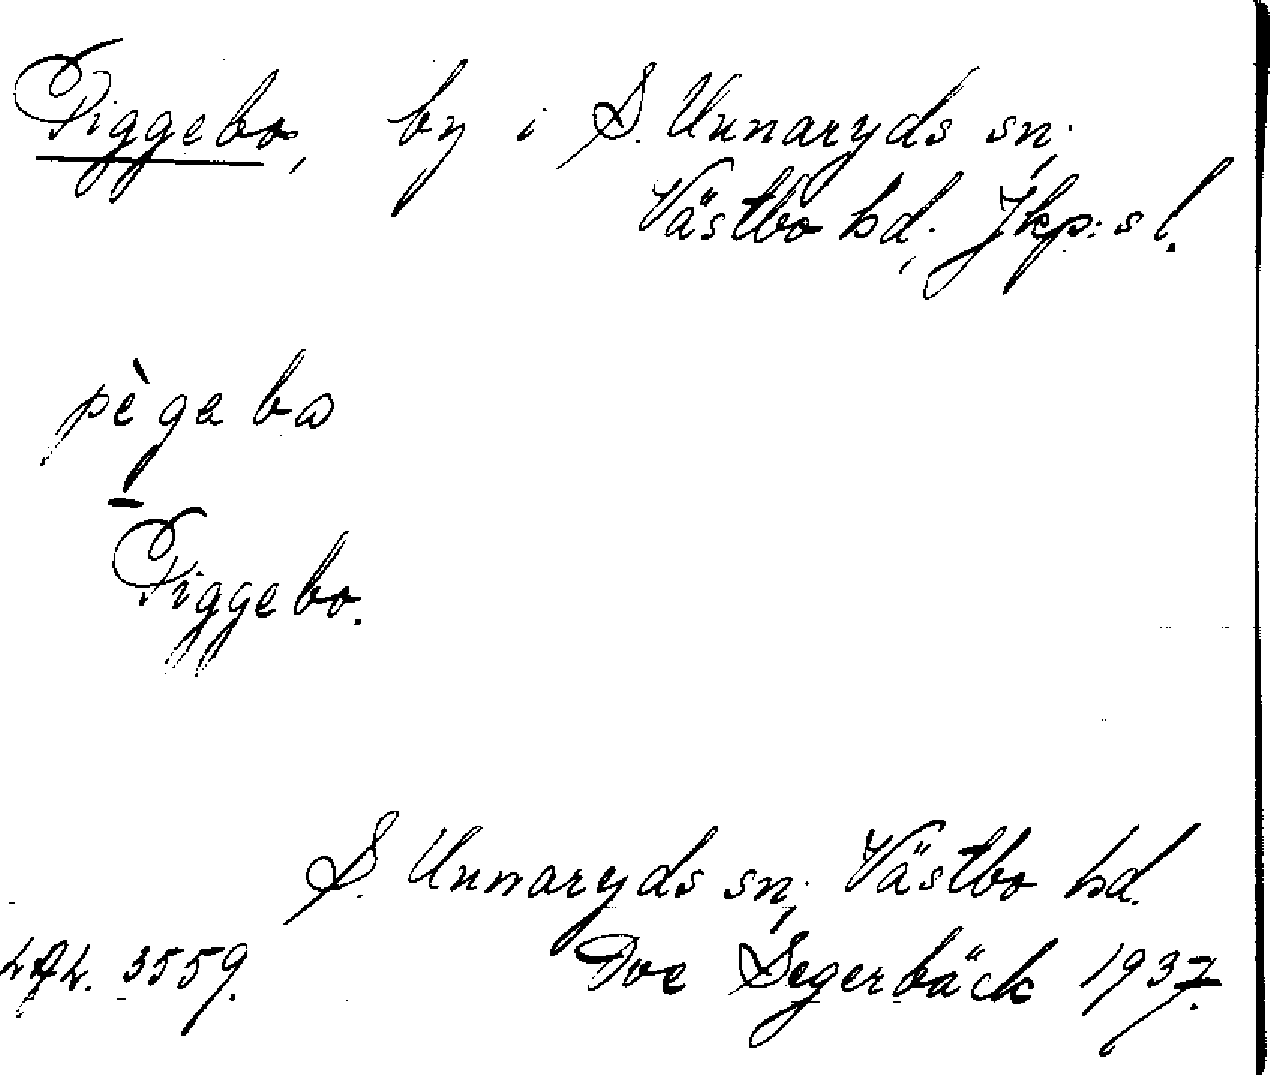 Piggebo, by i S. Unnaryds sn;
Västbo hd; Jkp:s l.
pègabω
Piggebo.
S. Unnaryds sn; Västbo hd.
3559. Segerbäck 1937.